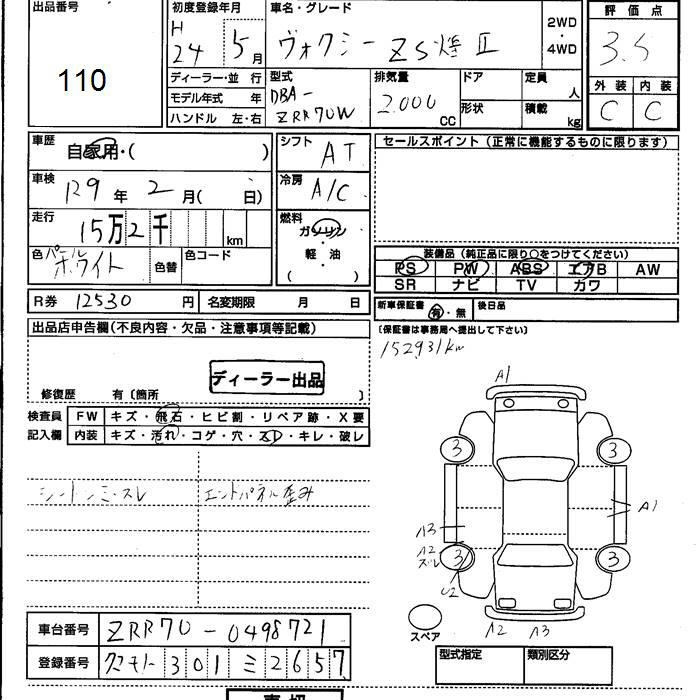 出品番号
110
初度登録年月
H 24 5月
車名・グレード
ヴォクシー ZS煌Ⅱ
2WD
・
4WD
評価点
3.5
外装 内装
C C
ディーラー・並行
モデル年式 年
ハンドル 左・右
型式
DBA-
ZRR70W
排気量
2.000
CC
ドア
形状
定員
人
積載
kg
車歴
自家用・( )
車検
R9年 2月( 日)
走行
15万2千 km
色 パールホワイト
色替
色コード
シフト
AT
冷房
A/C
燃料
ガソリン
・
軽油
( )
セールスポイント(正常に機能するものに限ります)
装備品(純正品に限り○をつけてください)
PS PW ABS エアB AW
SR ナビ TV カワ
R券 12530 円 名変期限 月 日
新車保証書 有・無 後日品
(保証書は事務局へ提出して下さい)
152931km
出品店申告欄(不良内容・欠品・注意事項等記載)
ディーラー出品
修復歴 有〔箇所 〕
検査員
記入欄
FW キズ・飛石・ヒビ割・リペア跡・X要
内装 キズ・汚れ・コゲ・穴・スレ・キレ・破レ
シートシミ・スレ エンドパネル歪み
A1
3 3
A1
A3
A2
スレ
3 3
U2
スペア
A2 A3
車台番号 ZRR70-0498721
登録番号 クマモト 301 ミ 2657
型式指定 類別区分